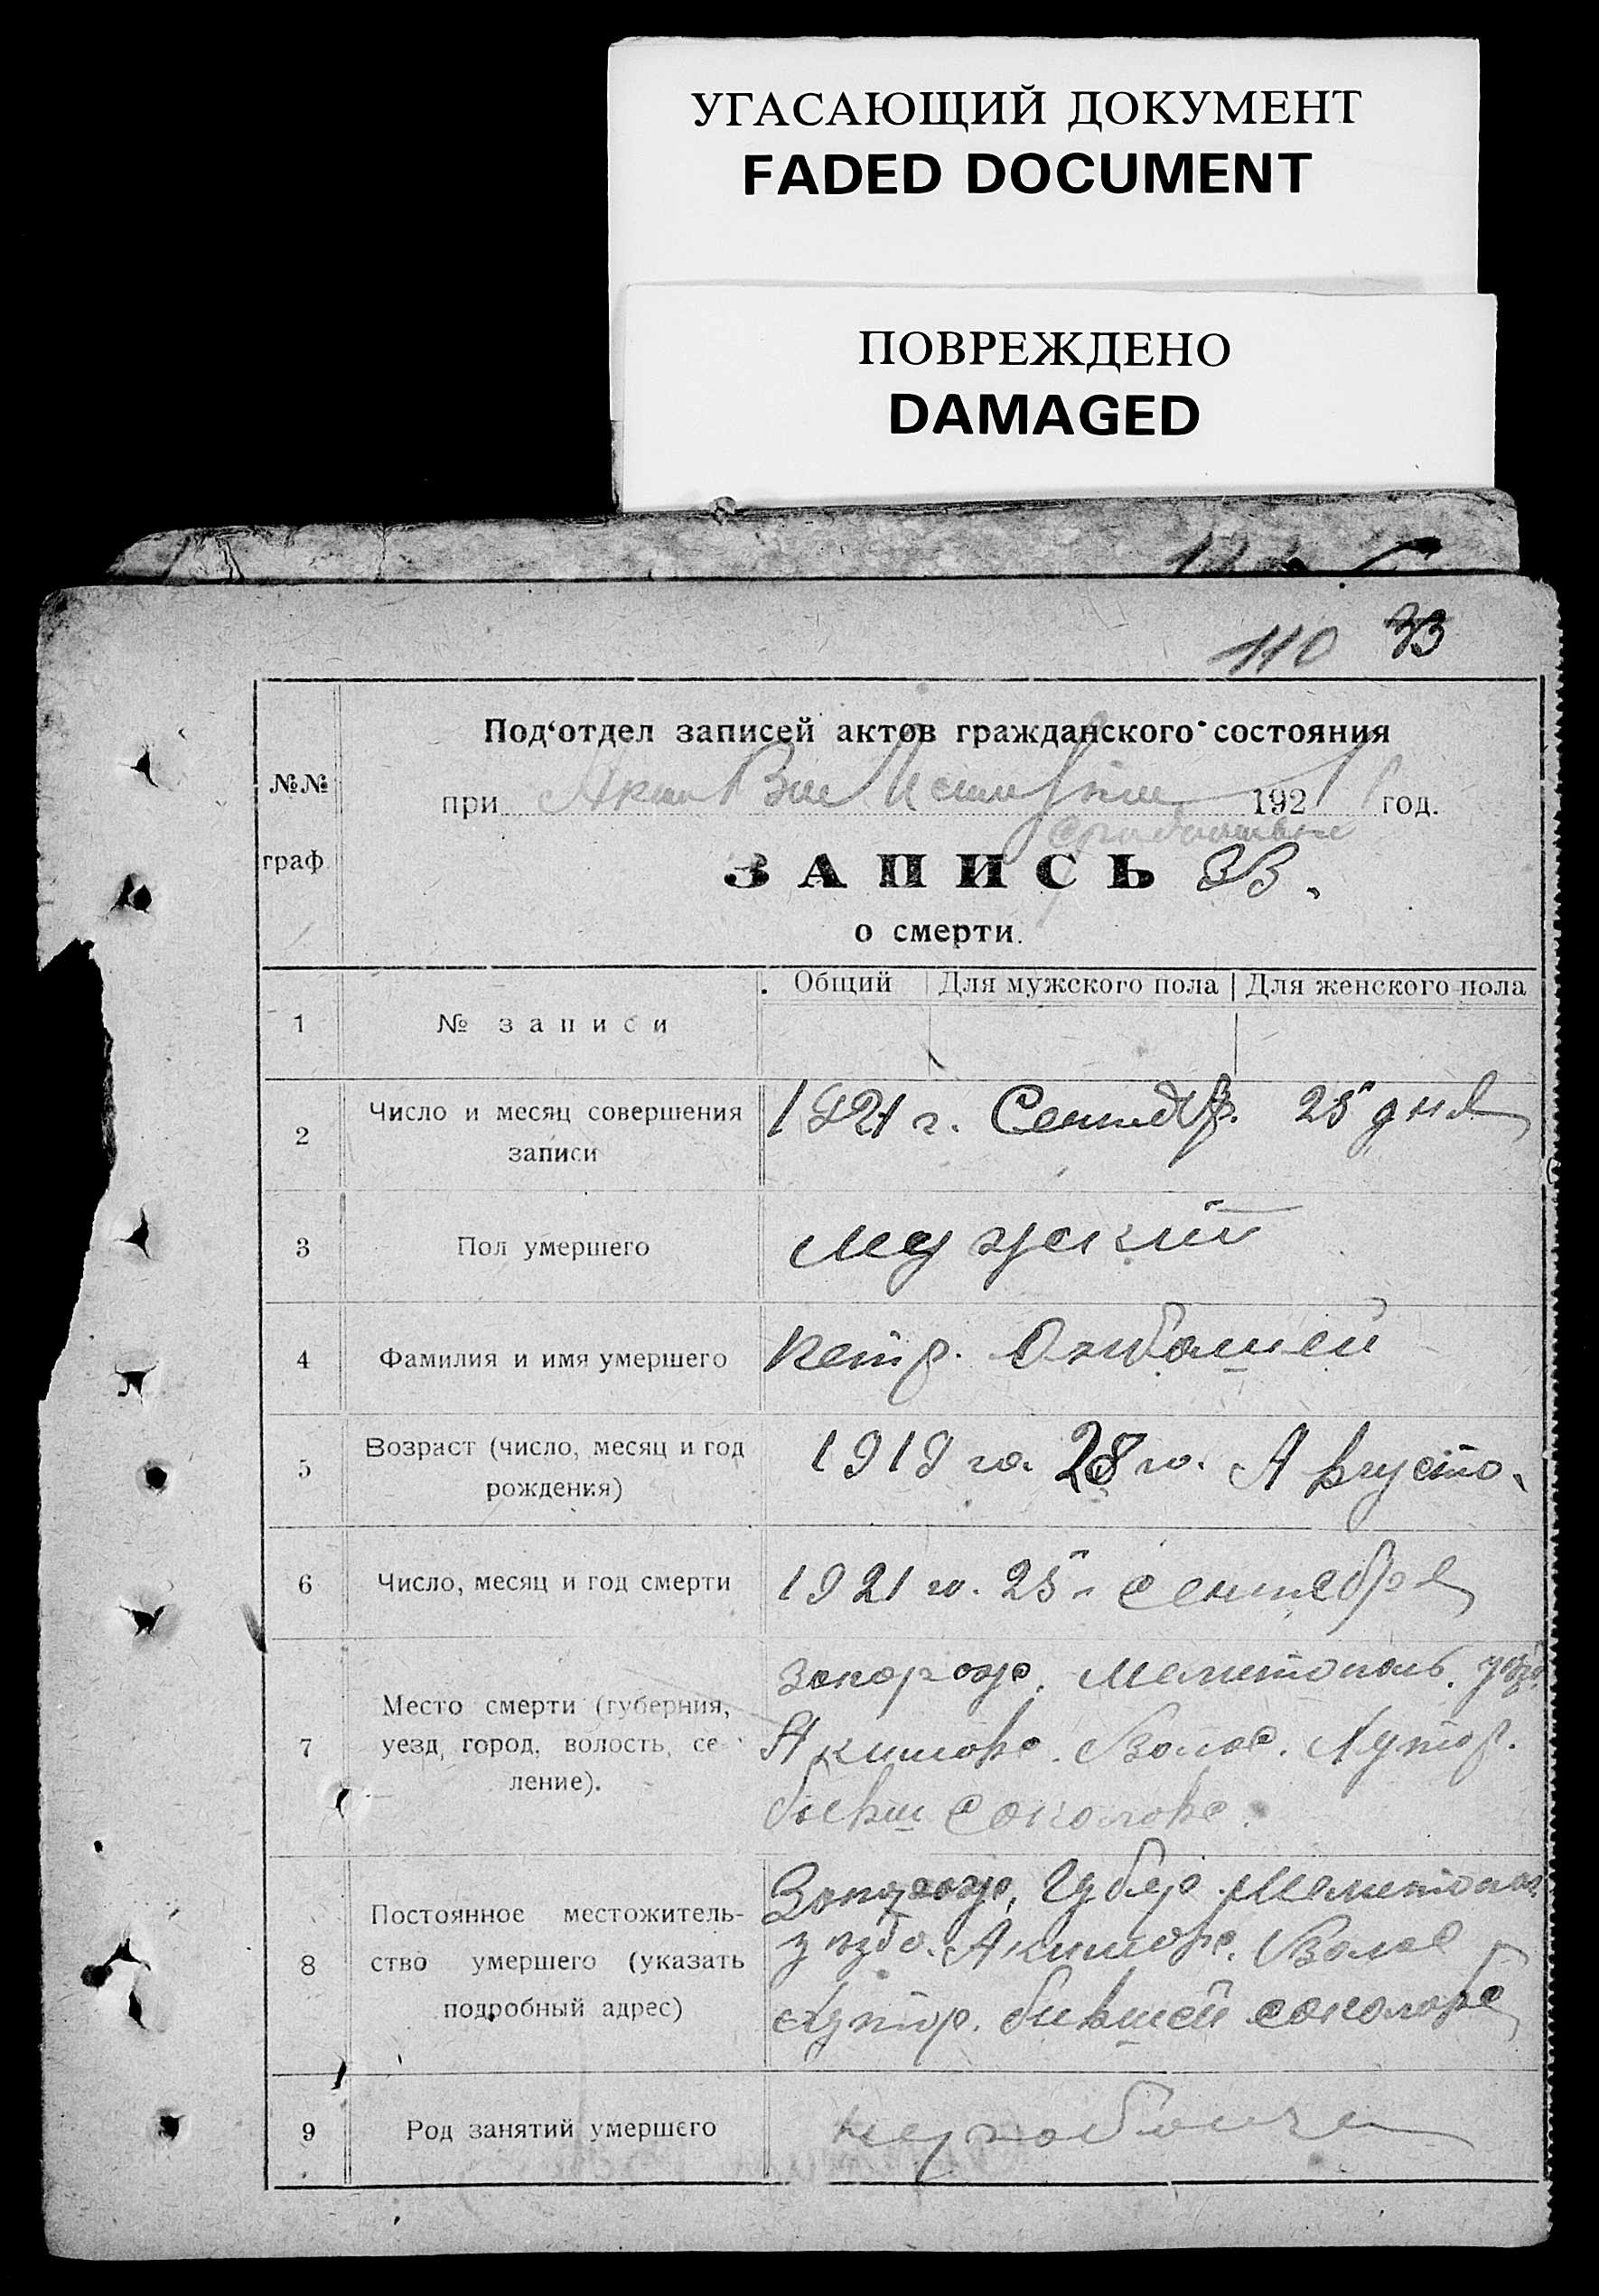 УГАСАЮЩИЙ ДОКУМЕНТ
FADED DOCUMENT
ПОВРЕЖДЕНО
DAMAGED
110 33
Под'отдел записей актов гражданского состояния
№№
при 1921 год.
граф.
ЗАПИСЬ 33.
о смерти.
Общий Для мужского пола Для женского пола
1 № записи
2 Число и месяц совершения
записи
1921 г. Сентябр. 25 дня
3 Пол умершего мужский
4 Фамилия и имя умершего Петр.
5 Возраст (число, месяц и год
рождения)
1919 го. 28 го. Августо.
6 Число, месяц и год смерти 1921 го. 25 Сентебря
7 Место смерти (губерния,
уезд, город, волость, се-
ление).
Мелитополь.
Акимовс. Волос. Хутор.
бывш Соколовс.
8 Постоянное местожитель-
ство умершего (указать
подробный адрес)
Губер. Мелитопол.
Акимовс. Волос
Хутор. бывшей соколовс
9 Род занятий умершего